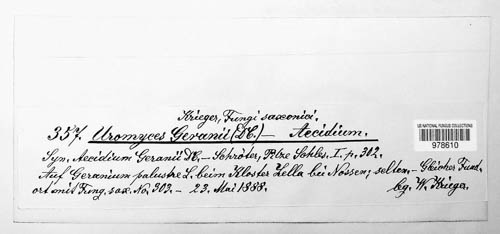 Krieger, Fungi saxonici.
357. Uromyces Geranii (DC.) — Aecidium.
US NATIONAL FUNGUS COLLECTIONS
978610
Syn. Aecidium Geranii DC. — Schröter, Pilze Schles. I. p. 302.
Auf Geranium palustre L. beim Kloster Zella bei Nossen; selten. — Gleicher Fund-
ort mit Fung. sax. No. 303. — 23. Mai 1888. lg. W. Krieger.